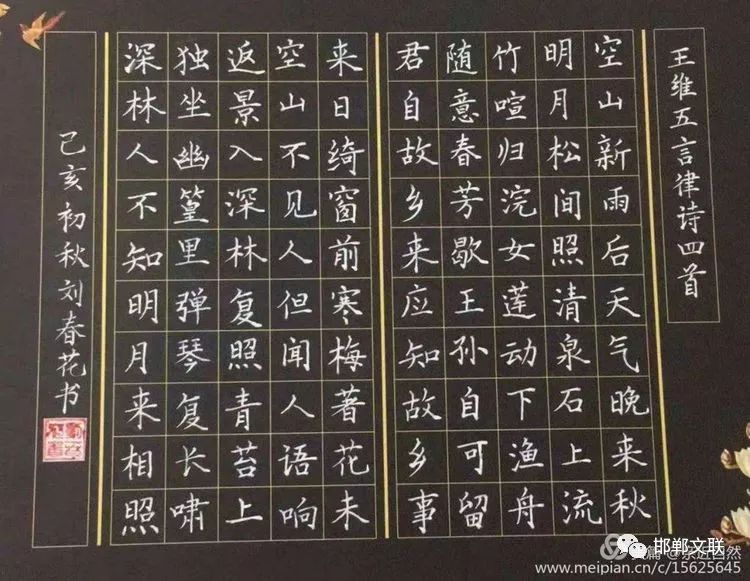 王维五言律诗四首
空山新雨后天气晚来秋
明月松间照清泉石上流
竹喧归浣女莲动下渔舟
随意春芳歇王孙自可留
君自故乡来应知故乡事
来日绮窗前寒梅著花未
空山不见人但闻人语响
返景入深林复照青苔上
独坐幽篁里弹琴复长啸
深林人不知明月来相照
己亥初秋刘春花书
邯郸文联
www.meipian.cn/c/15625645